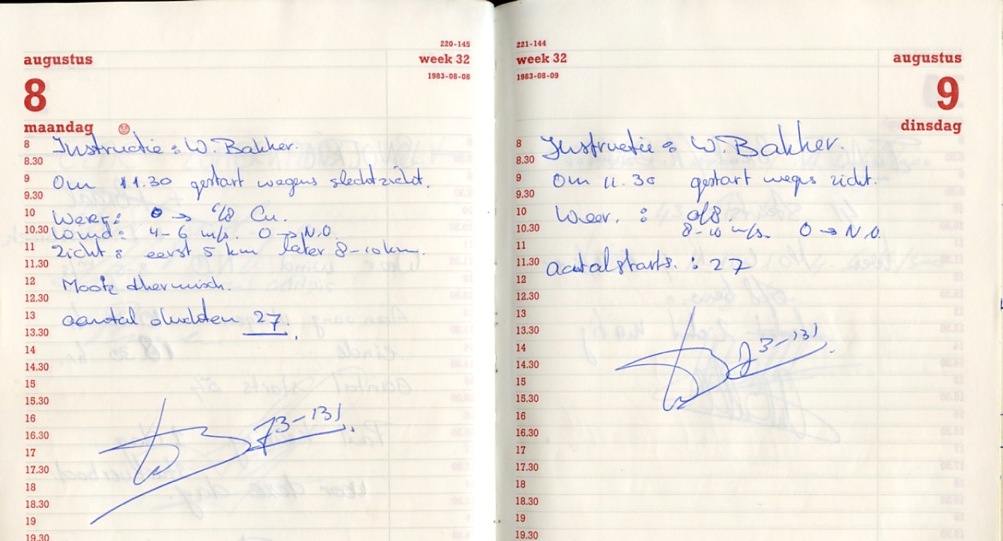 220-145
augustus
week 32
1983-08-08
8
maandag
8 Instructie: W. Bakker.
8.30
9 Om 11.30 gestart wegens slecht zicht.
9.30
10 Weer: 0 → 6/8 Cu.
10.30 Wind: 4-6 m/s. O → N.O.
11 Zicht: eerst 5 km later 8-10 km.
11.30
12 Mooie thermisch.
12.30
13 aantal vluchten 27.
13.30
14
14.30
15
15.30
16
16.30 73-131
17
17.30
18
18.30
19
19.30
221-144
week 32
augustus
1983-08-09
9
dinsdag
8 Instructie: W. Bakker.
8.30
9 Om 11.30 gestart wegns zicht.
9.30
10 Weer. : 0/8.
10.30 8-10 m/s. O → N.O.
11
11.30 aantalstarts. : 27
12
12.30
13
13.30
14 73-131
14.30
15
15.30
16
16.30
17
17.30
18
18.30
19
19.30